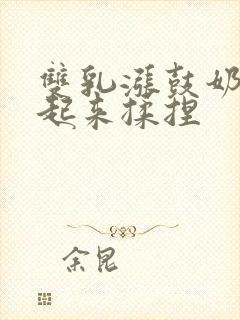 雙乳漲鼓奶
起來揉捏
余昆